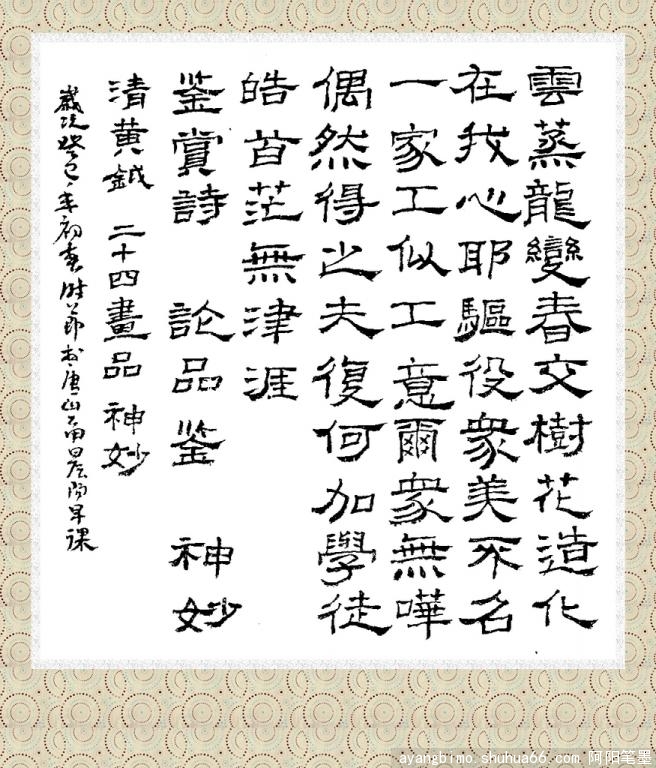 雲蒸龍變春交樹花造化
在我心耶驅役衆美不名
一家工似工意爾衆無嘩
偶然得之夫復何加學徒
皓首茫無津涯
鉴賞詩 論品鉴 神妙
清黄鉞 二十四畫品 神妙
歲次癸巳年初春时节书唐山南早課
ayangbimo.shuhua66.com 阿阳笔墨